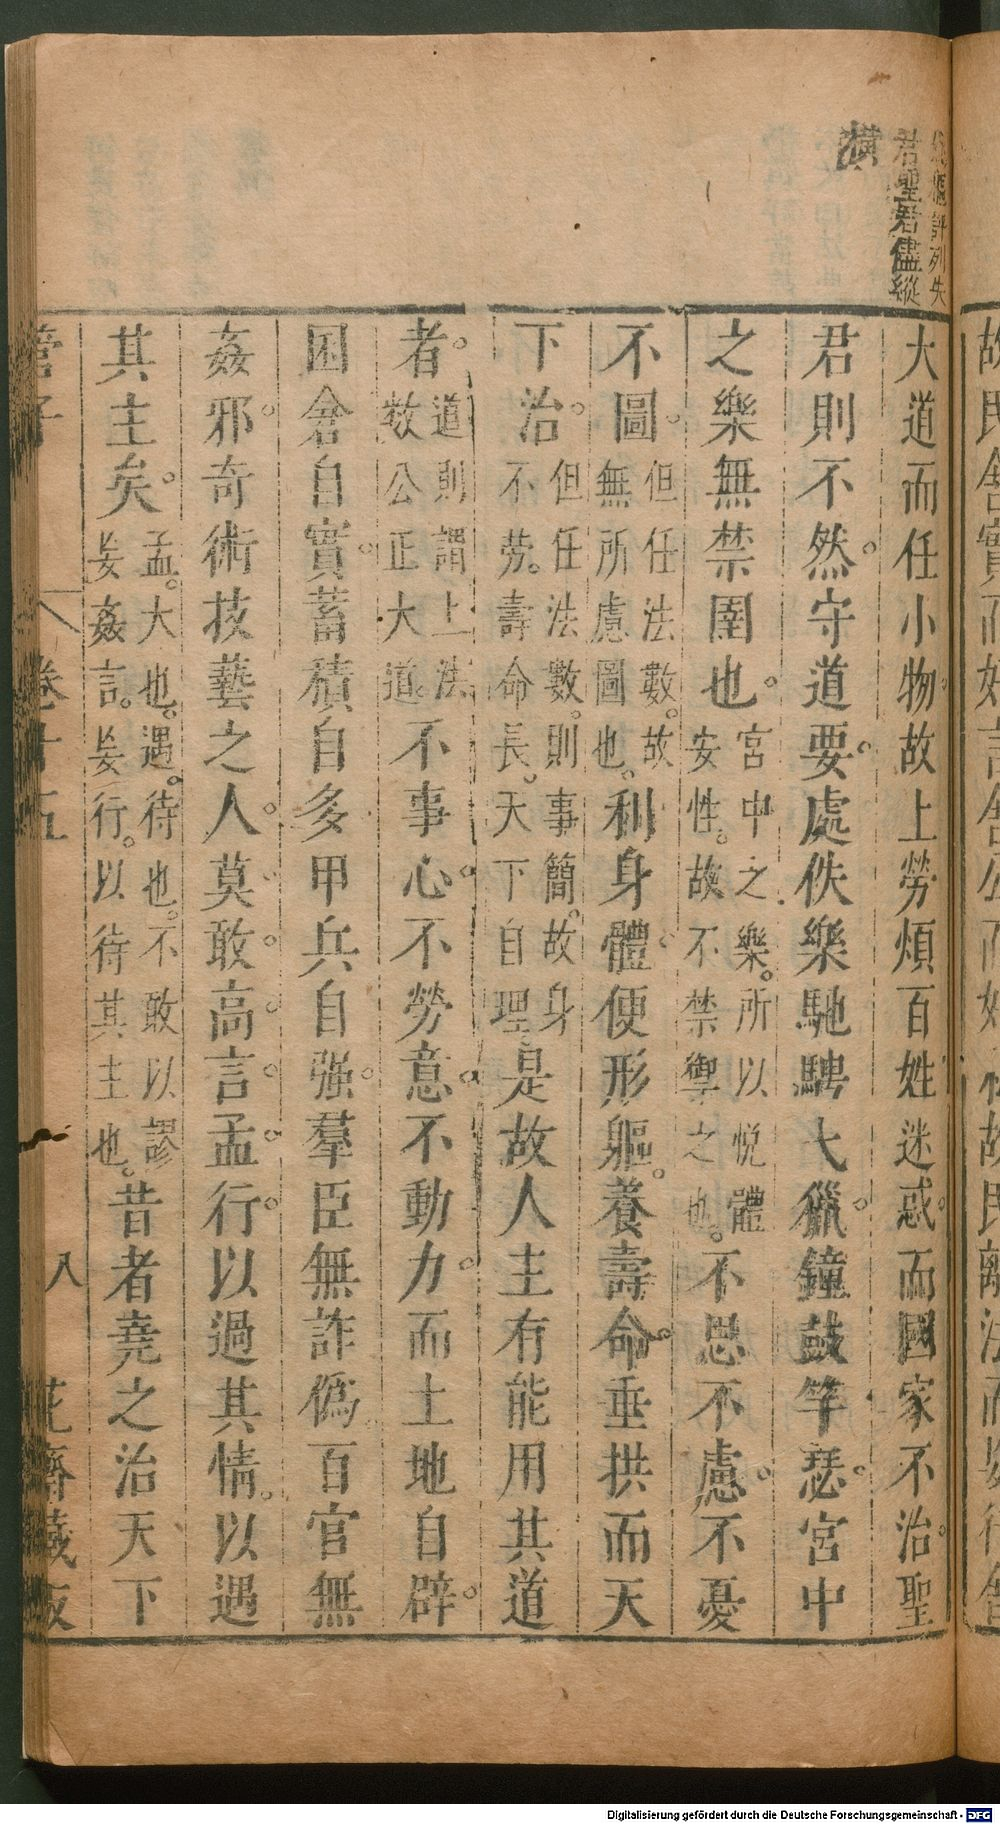 評列失
君聖君儘縱
橫
大道而任小物故上勞煩百姓迷惑而國家不治聖
君則不然守道要處佚樂馳騁弋獵鐘鼓竽瑟宮中
之樂無禁圉也宮中之樂所以悅體安性故不禁御之也不思不慮不憂
不圖但任法數故無所慮圖也利身體便形軀養壽命垂拱而天
下治但任法數則事簡故身不勞壽命長天下自理是故人主有能用其道
者道則謂上法數公正大道不事心不勞意不動力而土地自辟
囷倉自實蓄積自多甲兵自强羣臣無詐僞百官無
姦邪奇術技藝之人莫敢高言孟行以過其情以遇
其主矣孟大也遇待也不敢以謬妄姦言妄行以待其主也昔者堯之治天下
管子 卷十五 八 花齋藏板
Digitalisierung gefördert durch die Deutsche Forschungsgemeinschaft - DFG